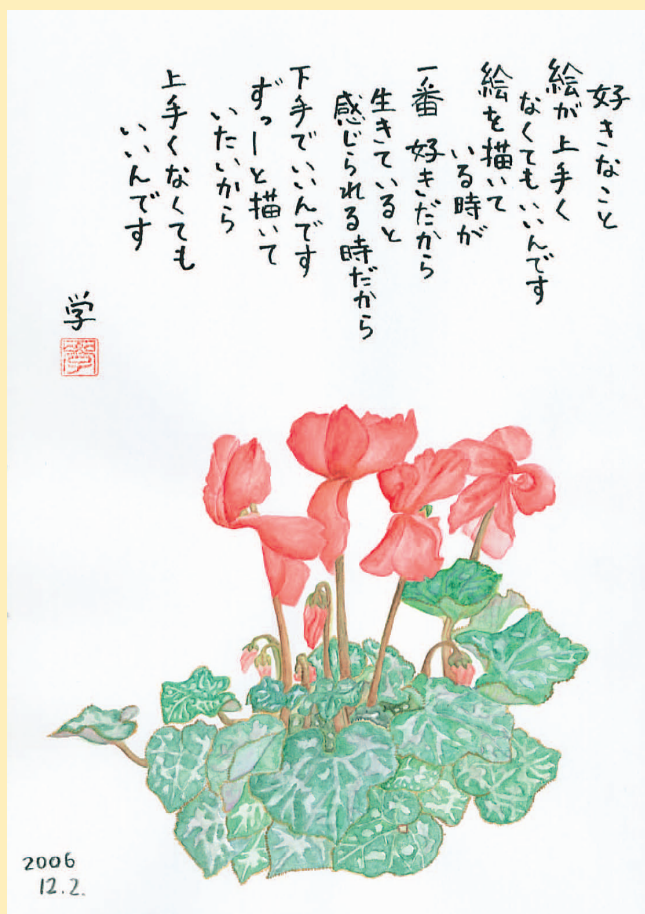 好きなこと
絵が上手く
なくてもいいんです
絵を描いて
いる時が
一番 好きだから
生きていると
感じられる時だから
下手でいいんです
ずっーと描いて
いたいから
上手くなくても
いいんです
学
2006
12.2.